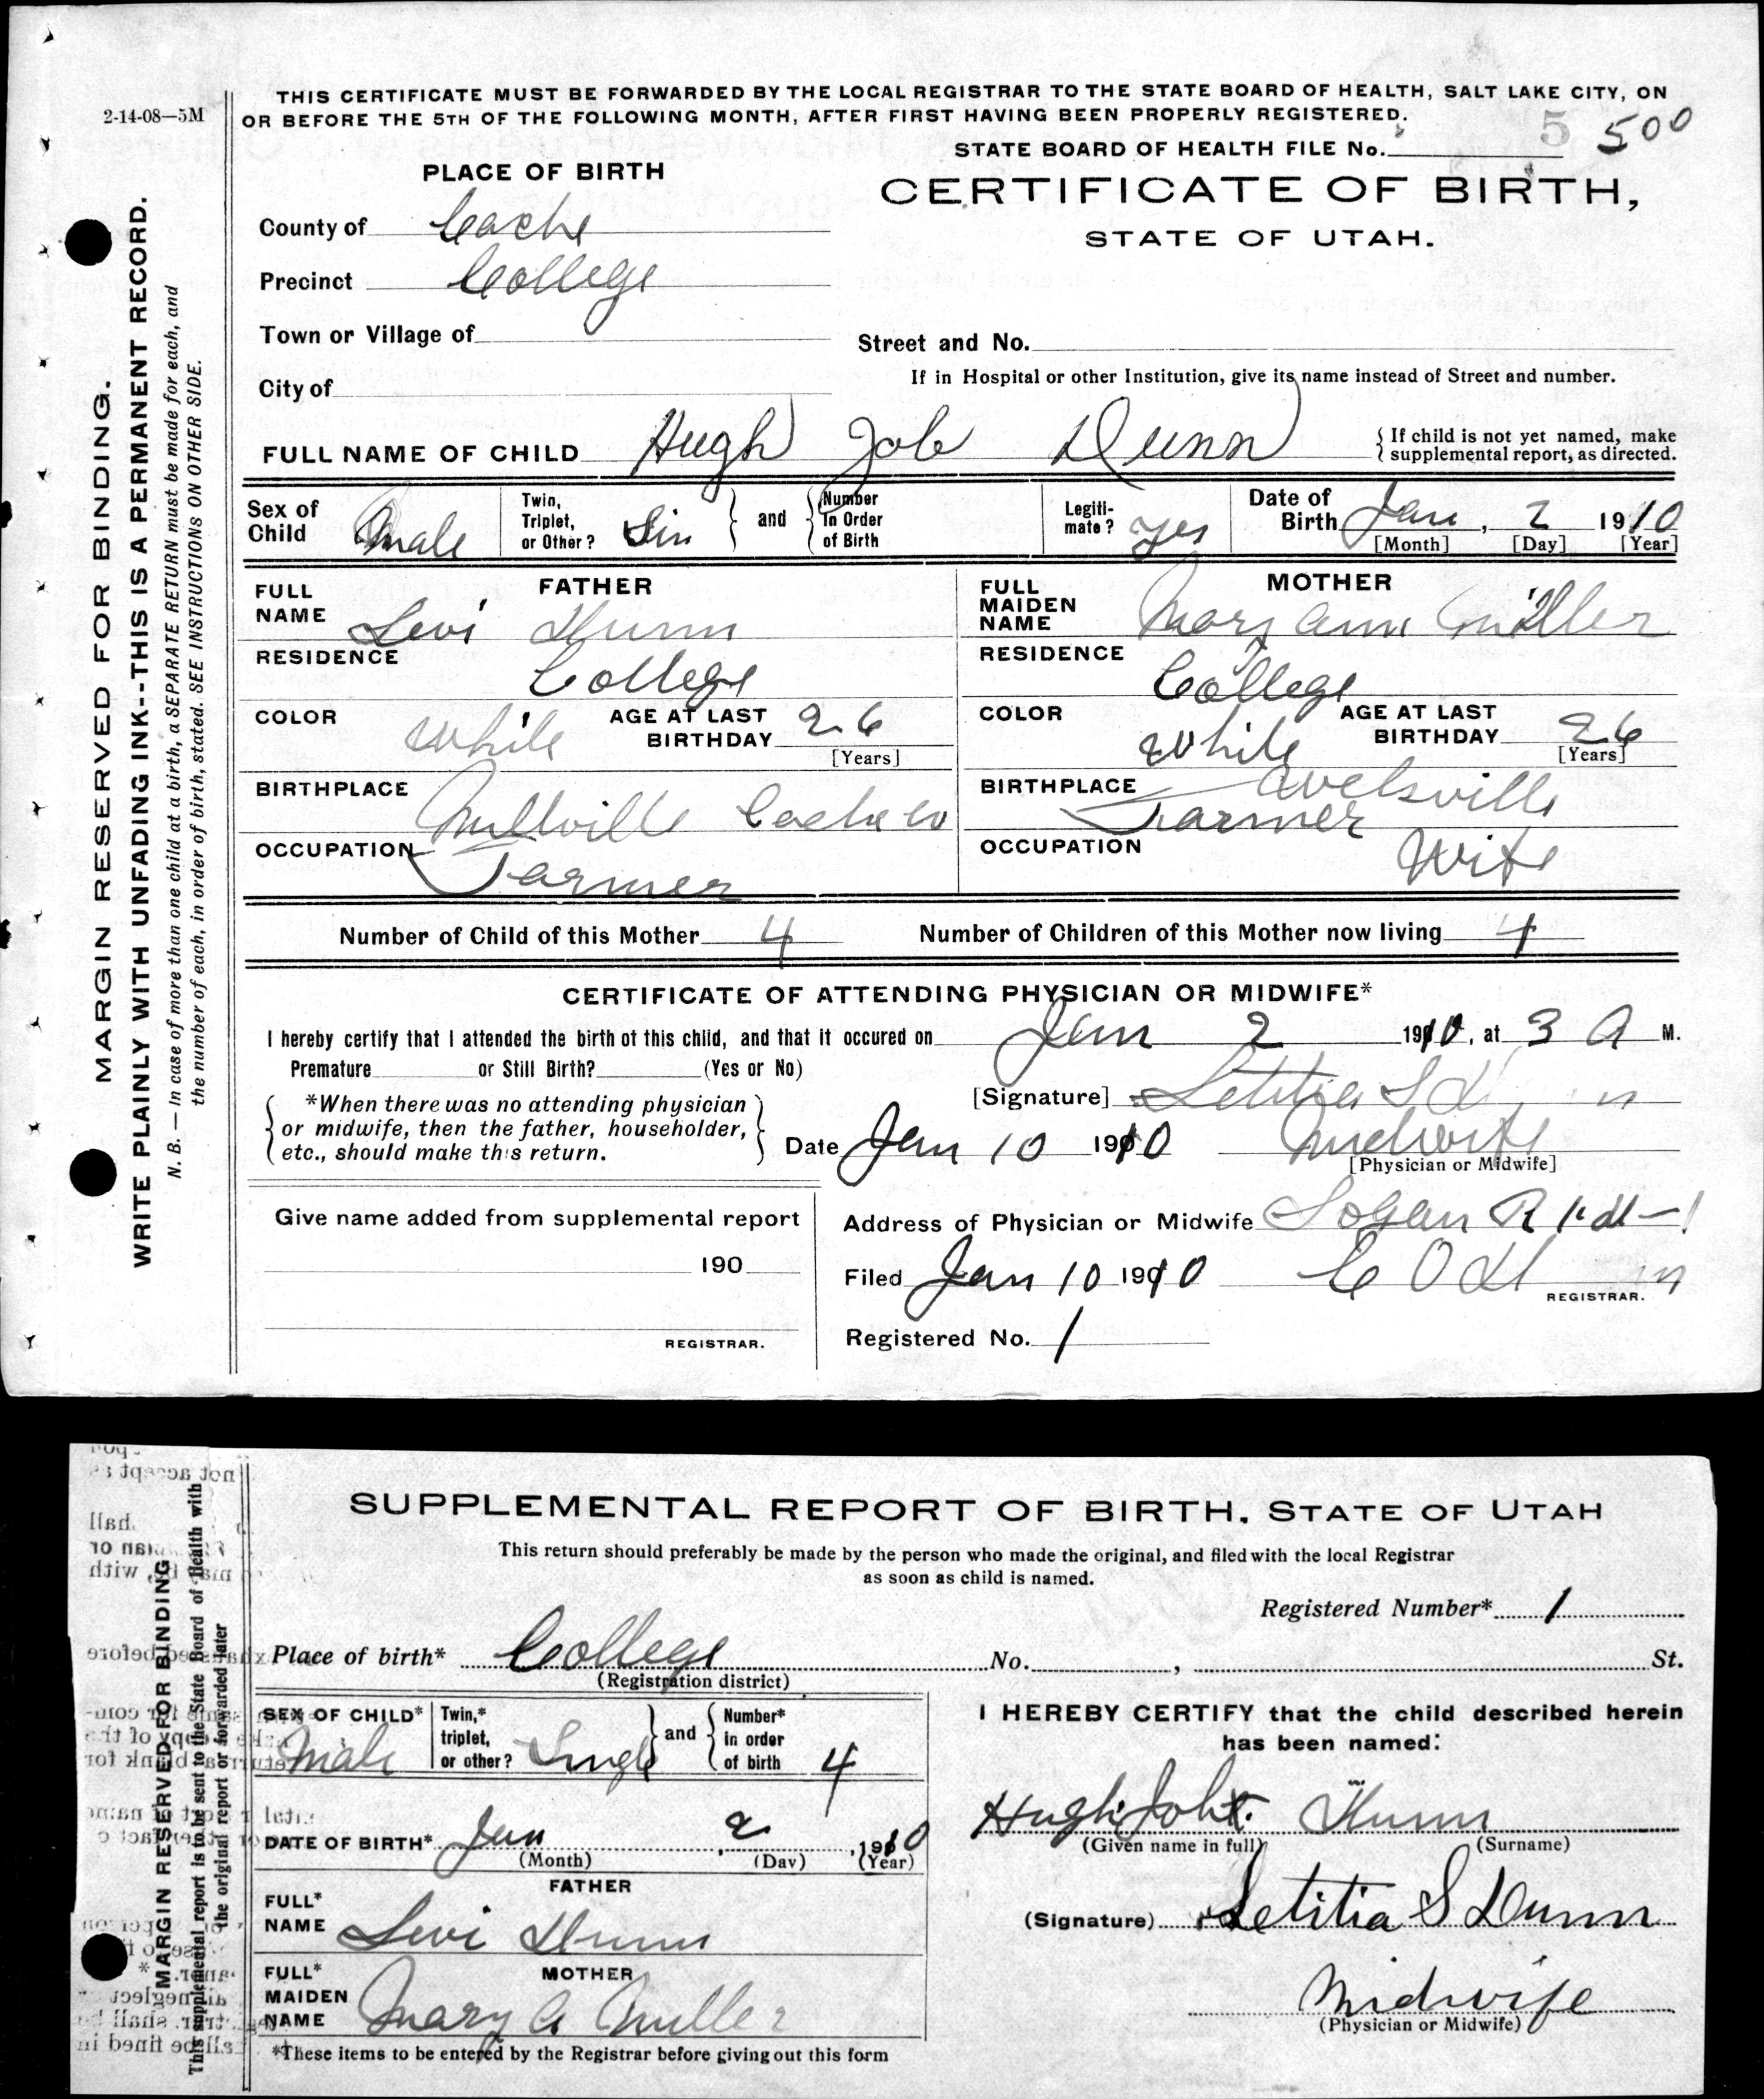 2-14-08—5M
THIS CERTIFICATE MUST BE FORWARDED BY THE LOCAL REGISTRAR TO THE STATE BOARD OF HEALTH, SALT LAKE CITY, ON
OR BEFORE THE 5TH OF THE FOLLOWING MONTH, AFTER FIRST HAVING BEEN PROPERLY REGISTERED.
STATE BOARD OF HEALTH FILE No. 5 500
PLACE OF BIRTH
CERTIFICATE OF BIRTH,
STATE OF UTAH.
County of Cache
Precinct College
Town or Village of
Street and No.
City of
If in Hospital or other Institution, give its name instead of Street and number.
FULL NAME OF CHILD Hugh Job Dunn
{ If child is not yet named, make
supplemental report, as directed.
Sex of Child Male
Twin, Triplet, or Other? Sin } and { Number In Order of Birth
Legiti-mate? yes
Date of Birth Jan, 2 1910
[Month] [Day] [Year]
FATHER
FULL NAME Levi Dunn
RESIDENCE College
COLOR White AGE AT LAST BIRTHDAY 26
[Years]
BIRTHPLACE Millville Cache co
OCCUPATION Farmer
MOTHER
FULL MAIDEN NAME Mary Ann Miller
RESIDENCE College
COLOR White AGE AT LAST BIRTHDAY 26
[Years]
BIRTHPLACE Welsville
OCCUPATION Farmer Wife
Number of Child of this Mother 4 Number of Children of this Mother now living 4
CERTIFICATE OF ATTENDING PHYSICIAN OR MIDWIFE*
I hereby certify that I attended the birth of this child, and that it occured on Jan 2 1910, at 3 A M.
Premature or Still Birth? (Yes or No)
*When there was no attending physician
or midwife, then the father, householder,
etc., should make this return.
[Signature] Letitia S
Date Jan 10 1910 Midwife
[Physician or Midwife]
Give name added from supplemental report
190
REGISTRAR.
Address of Physician or Midwife Logan R
Filed Jan 10 1910 C O
REGISTRAR.
Registered No. 1
MARGIN RESERVED FOR BINDING.
WRITE PLAINLY WITH UNFADING INK--THIS IS A PERMANENT RECORD.
N. B. — In case of more than one child at a birth, a SEPARATE RETURN must be made for each, and
the number of each, in order of birth, stated. SEE INSTRUCTIONS ON OTHER SIDE.
SUPPLEMENTAL REPORT OF BIRTH, STATE OF UTAH
This return should preferably be made by the person who made the original, and filed with the local Registrar
as soon as child is named.
Registered Number* 1
Place of birth* College No. , St.
(Registration district)
SEX OF CHILD* Male
Twin,* triplet, or other? Single } and { Number* in order of birth 4
DATE OF BIRTH* Jan , 2 , 1910
(Month) (Day) (Year)
FATHER
FULL* NAME Levi Dunn
MOTHER
FULL* MAIDEN NAME Mary A Miller
*These items to be entered by the Registrar before giving out this form
I HEREBY CERTIFY that the child described herein
has been named:
Hugh Dunn
(Given name in full) (Surname)
(Signature) Letitia S Dunn
Midwife
(Physician or Midwife)
MARGIN RESERVED FOR BINDING
This supplemental report is to be sent to the State Board of Health with
the original report or forwarded later